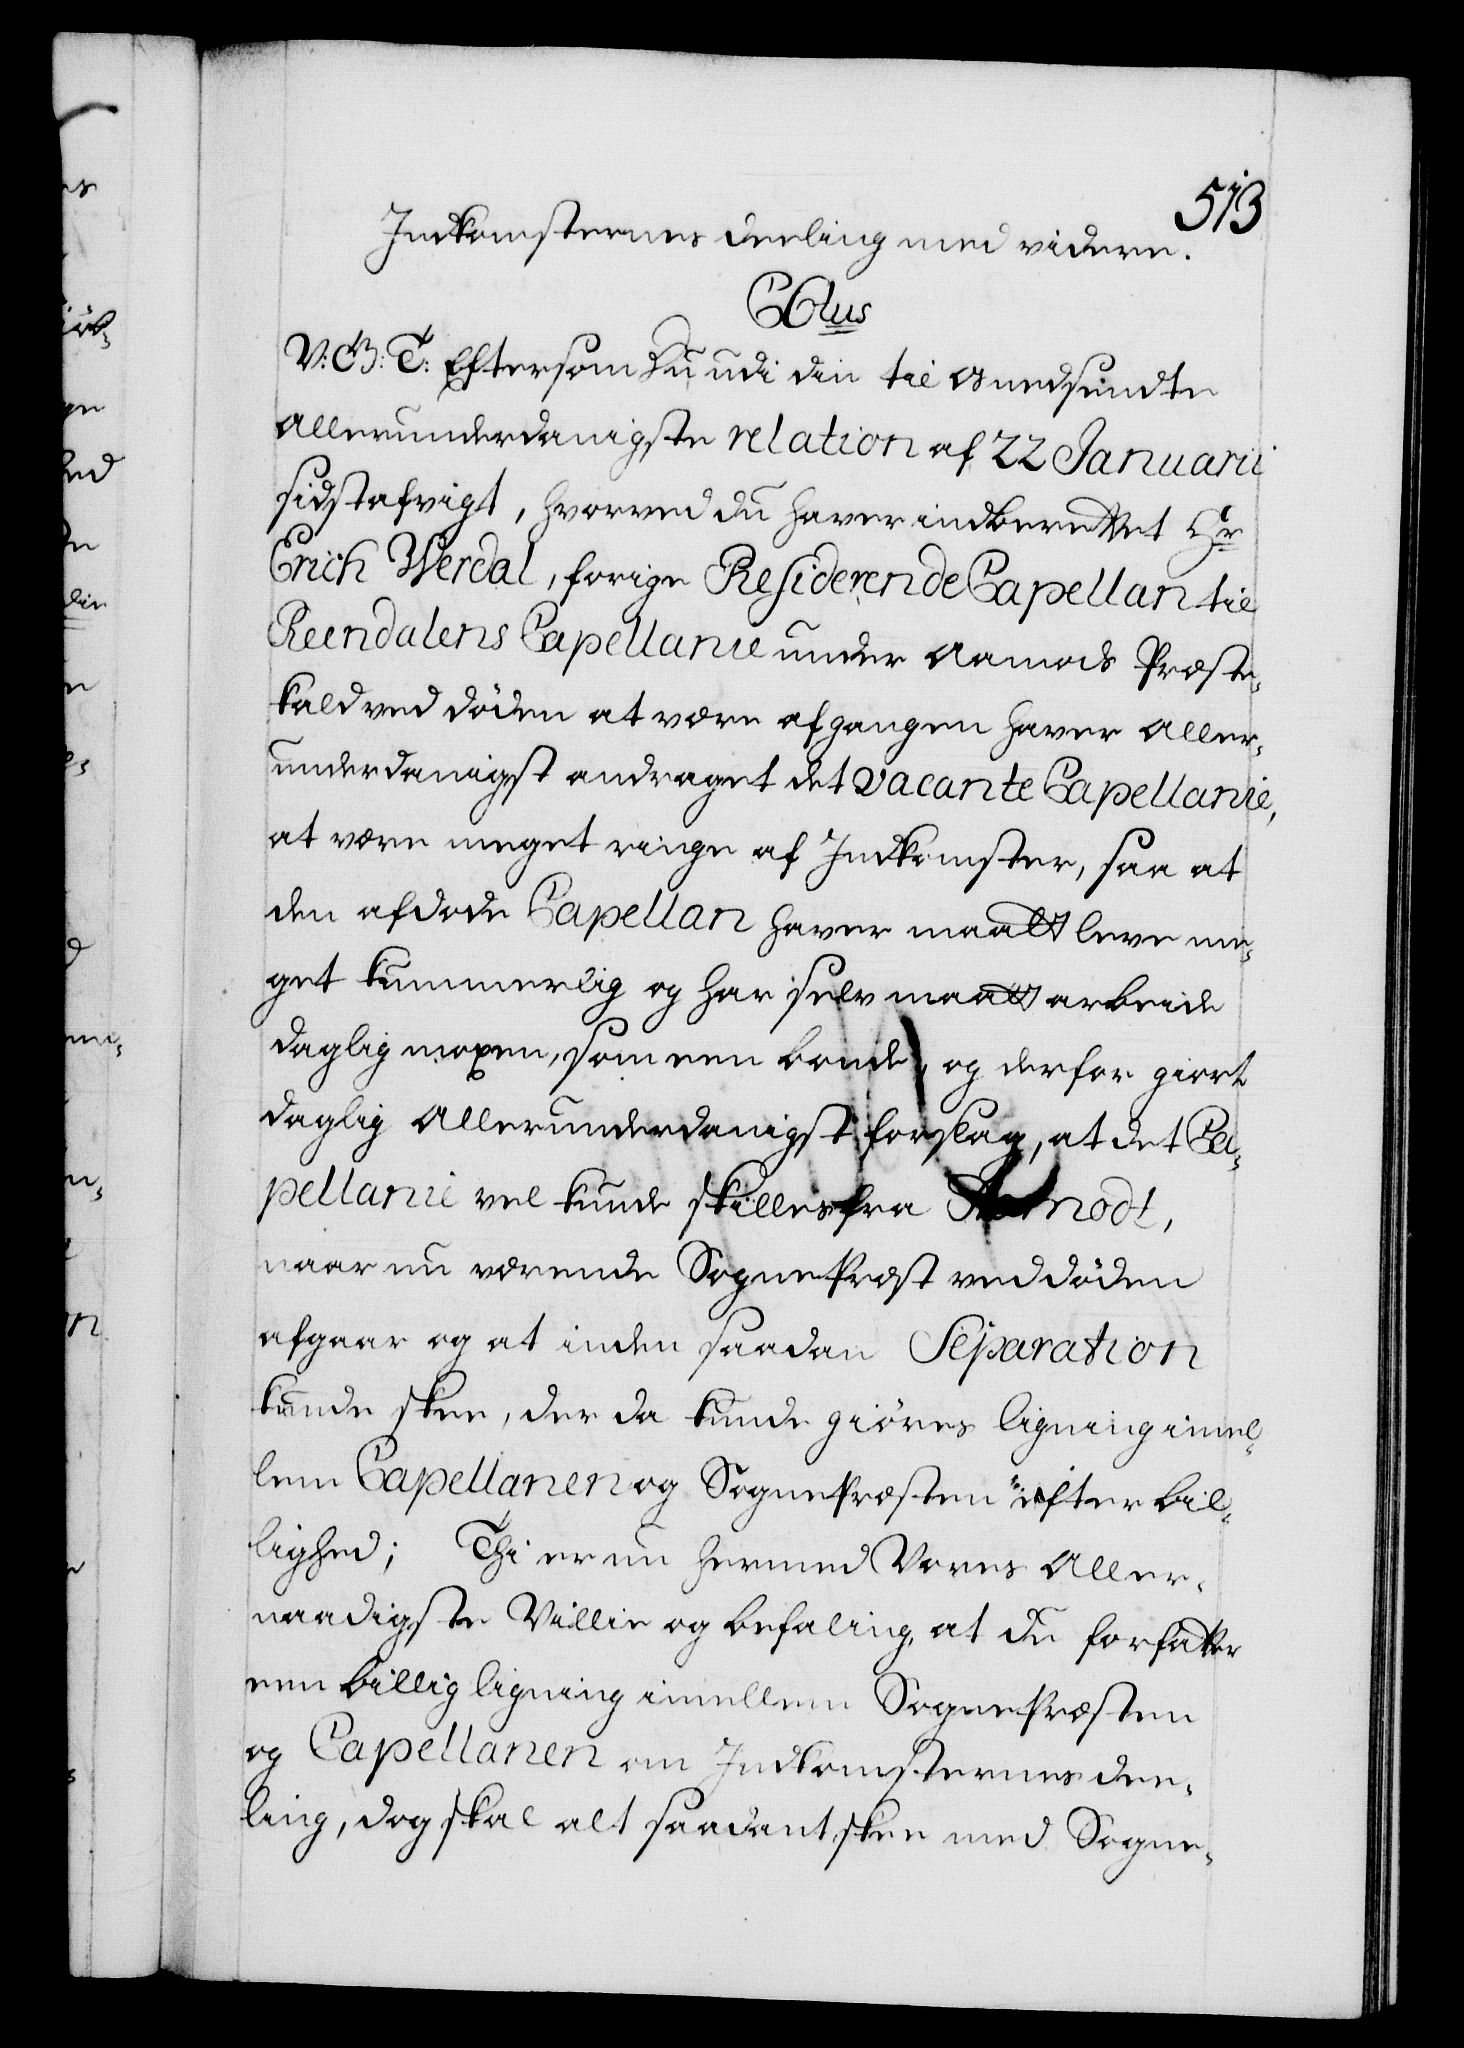 513
Indkomsternes deeling med videre.
CVIus
V: G: T: Eftersom Du udi din til Os nedsendte
allerunderdanigste relation af 22 Januarii
sidst afvigt, hvorved du haver indberettet Hr
Erich Werdal, forige Residerende Capellan til
Reendalens Capellanie under Aamods Præste-
kald ved døden at være afgangen haver aller-
underdanigst andraget det vacante Capellanie,
at være meget ringe af Indkomster, saa at
den afdøde Capellan haver maatt leve me-
get kummerlig og har selv maatt arbeide
daglig moxen, som een bonde, og derfor giort
daglig Allerunderdanigst forslag, at det Ca-
pellanie vel kunde skilles fra Aamodt,
naar nu værende SognePræst ved døden
afgaar og at inden saadan Separation
kunde skee, der da kunde giøres ligning imel-
lem Capellanen og SognePræsten efter bil-
lighed; Thi er nu hermed Vores Aller-
naadigste Villie og befaling, at du forfatter
een billig ligning imellem SognePræsten
og Capellanen om Indkomsternes dee-
ling, dog skal alt saadant skee med Sogne-